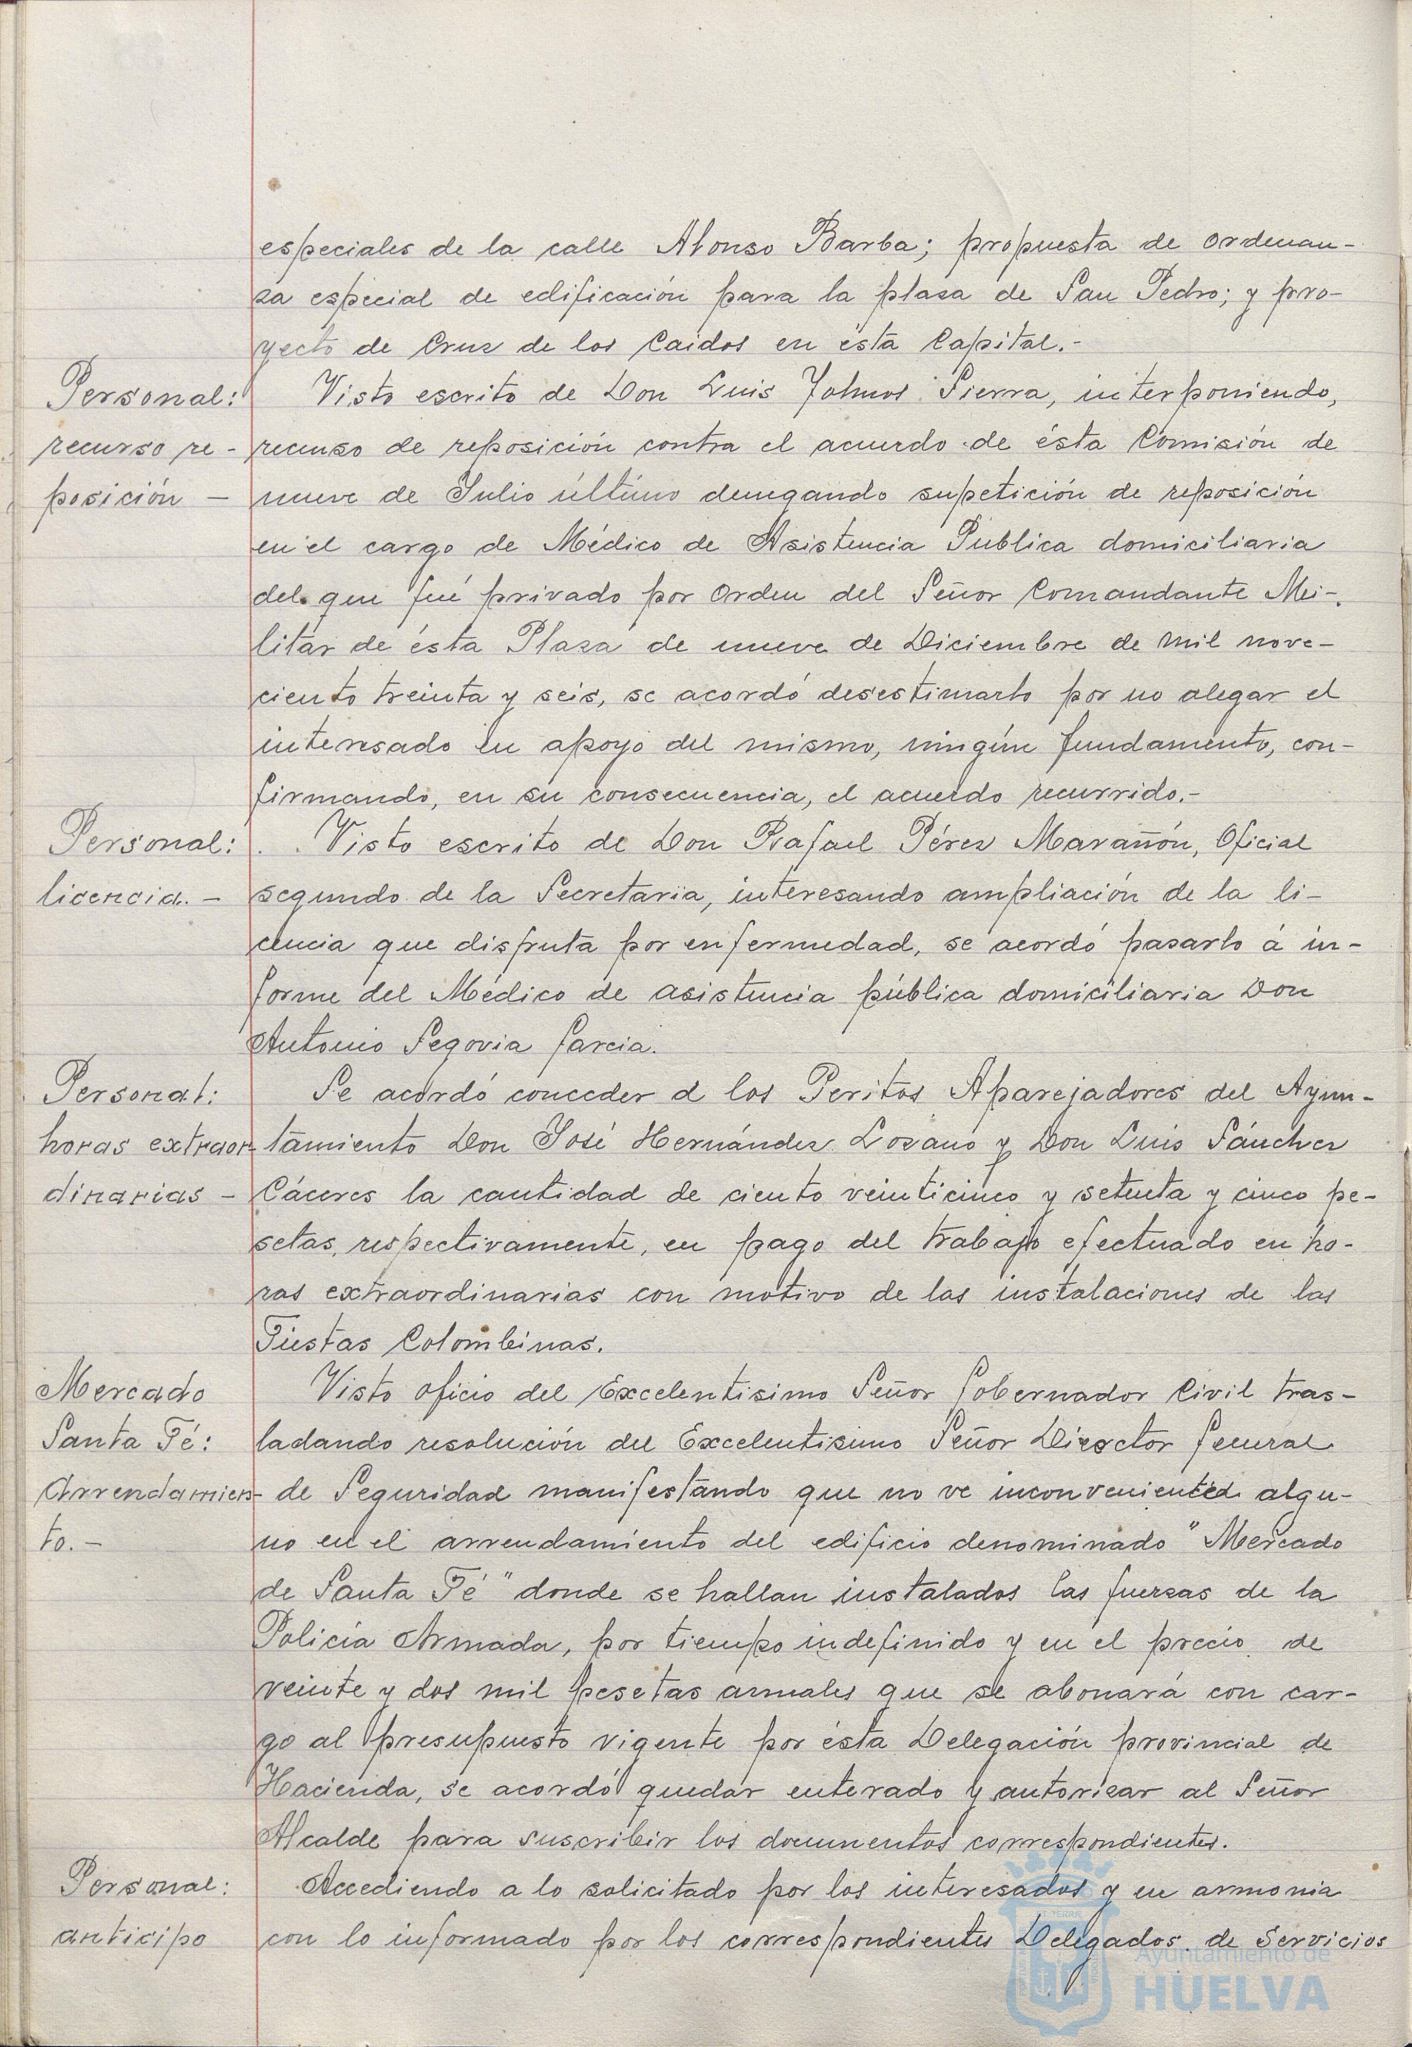 especiales de la calle Alonso Barba; propuesta de ordenan-
za especial de edificación para la plaza de San Pedro; y pro-
yecto de Cruz de los Caidos en ésta Capital.-
Personal:
recurso re-
posición —
Visto escrito de Don Luis Sierra, interponiendo,
recurso de reposición contra el acuerdo de ésta Comisión de
nueve de Julio último denegando supetición de reposición
en el cargo de Médico de Asistencia Publica domiciliaria
del que fué privado por Orden del Señor Comandante Mi-
litar de ésta Plaza de nueve de Diciembre de mil nove-
ciento treinta y seis, se acordó desestimarlo por no alegar el
interesado en apoyo del mismo, ningún fundamento, con-
firmando, en su consecuencia, el acuerdo recurrido.-
Personal:
licencia.-
Visto escrito de Don Rafael Pérez Marañón, Oficial
segundo de la Secretaria, interesando ampliación de la li-
cencia que disfruta por enfermedad, se acordó pasarlo á in-
forme del Médico de asistencia pública domiciliaria Don
Antonio Segovia Garcia.
Personal:
horas extraor-
dinarias -
Se acordó conceder á los Peritos Aparejadores del Ayun-
tamiento Don José Hernández Lozano y Don Luis Sánchez
Cáceres la cantidad de ciento veinticinco y setenta y cinco pe-
setas, respectivamente, en pago del trabajo efectuado en ho-
ras extraordinarias con motivo de las instalaciones de las
Fiestas Colombinas.
Mercado
Santa Fé:
Arrendamien-
to.-
Visto oficio del Excelentisimo Señor Gobernador Civil tras-
ladando resolución del Excelentisimo Señor Director General
de Seguridad manifestando que no ve inconveniente algu-
no en el arrendamiento del edificio denominado "Mercado
de Santa Fé" donde se hallan instalados las fuerzas de la
Policía Armada, por tiempo indefinido y en el precio de
veinte y dos mil pesetas anuales que se abonará con car-
go al presupuesto vigente por ésta Delegación provincial de
Hacienda, se acordó quedar enterado y autorizar al Señor
Alcalde para suscribir los documentos correspondientes.
Personal:
anticipo
Accediendo a lo solicitado por los interesados y en armonia
con lo informado por los correspondientes Delegados de Servicios
Ayuntamiento de
HUELVA